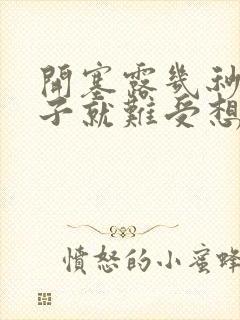 開塞露幾秒
子就難受想
憤怒的小蜜蜂